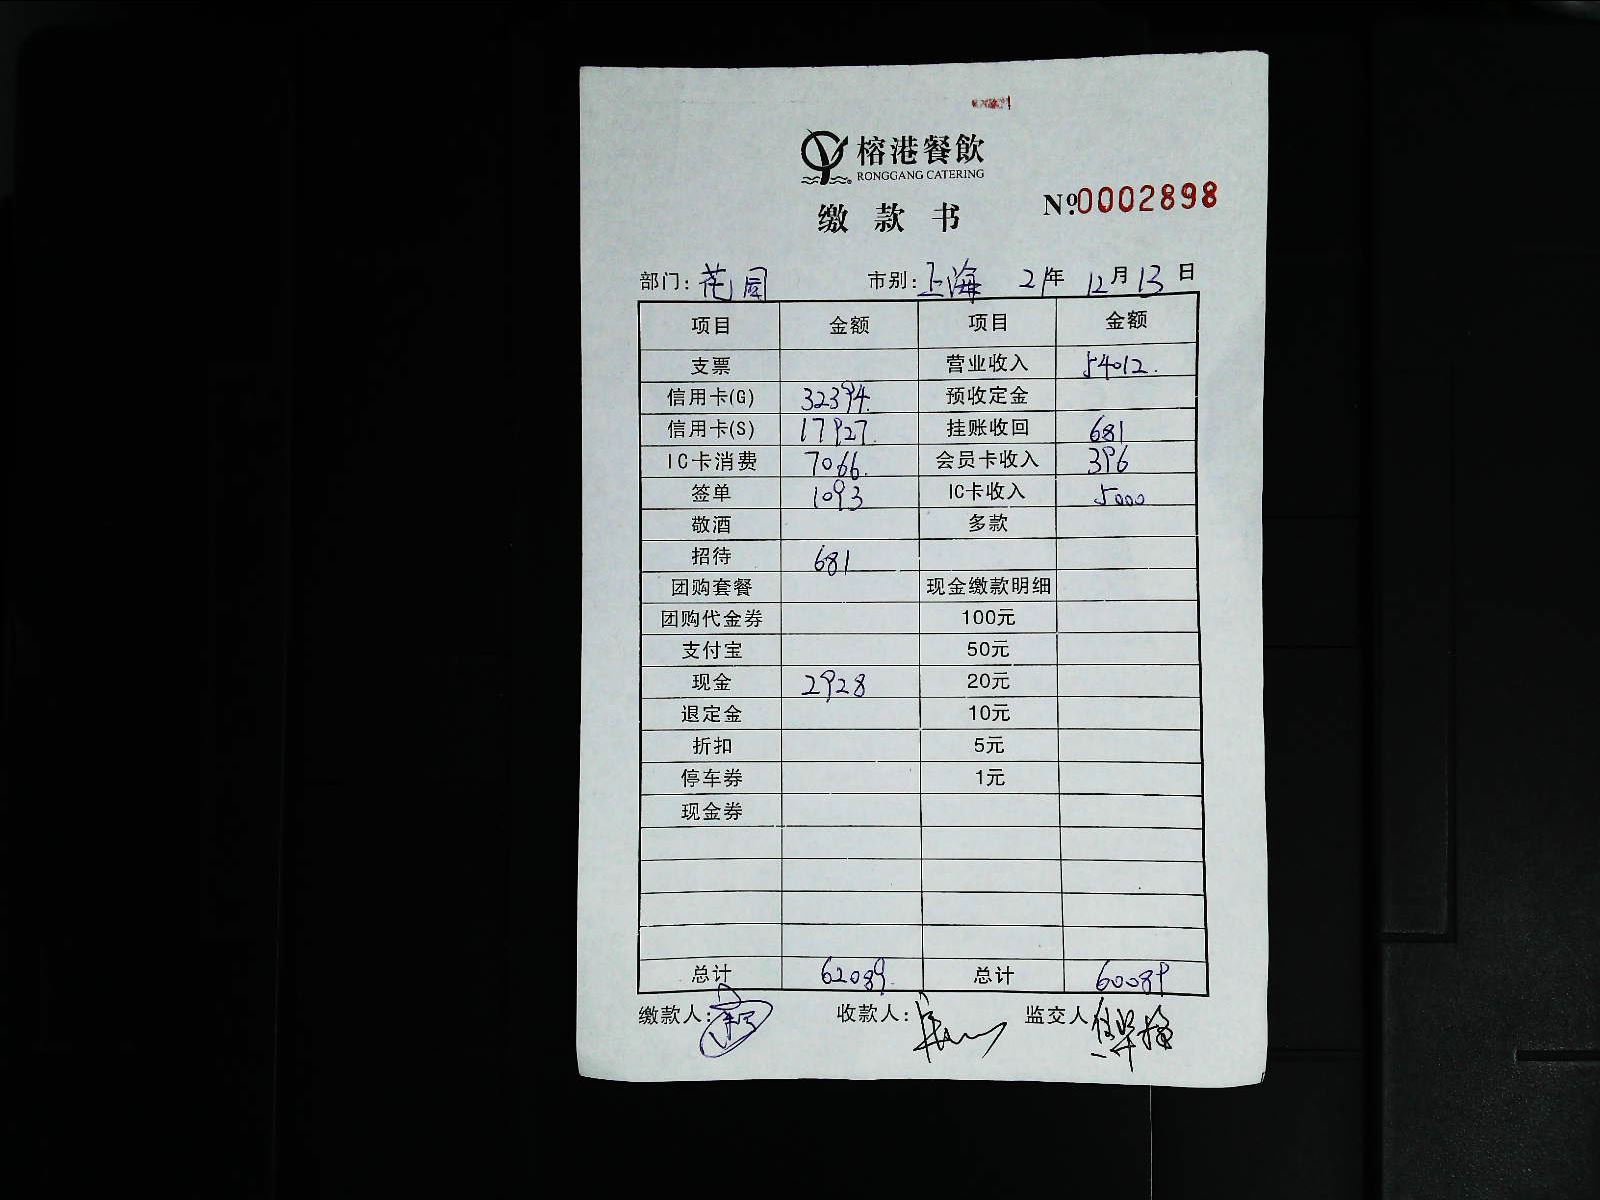 榕港餐飲
RONGGANG CATERING
缴款书
№0002898
部门:花园 市别:上海 21年 12月13日
项目 金额 项目 金额
支票 营业收入 54012.
信用卡(G) 32394. 预收定金
信用卡(S) 17927. 挂账收回 681
IC卡消费 7066. 会员卡收入 396
签单 1093 IC卡收入 5000
敬酒 多款
招待 681
团购套餐 现金缴款明细
团购代金券 100元
支付宝 50元
现金 2928 20元
退定金 10元
折扣 5元
停车券 1元
现金券
总计 62089. 总计 60089
缴款人: 收款人: 监交人